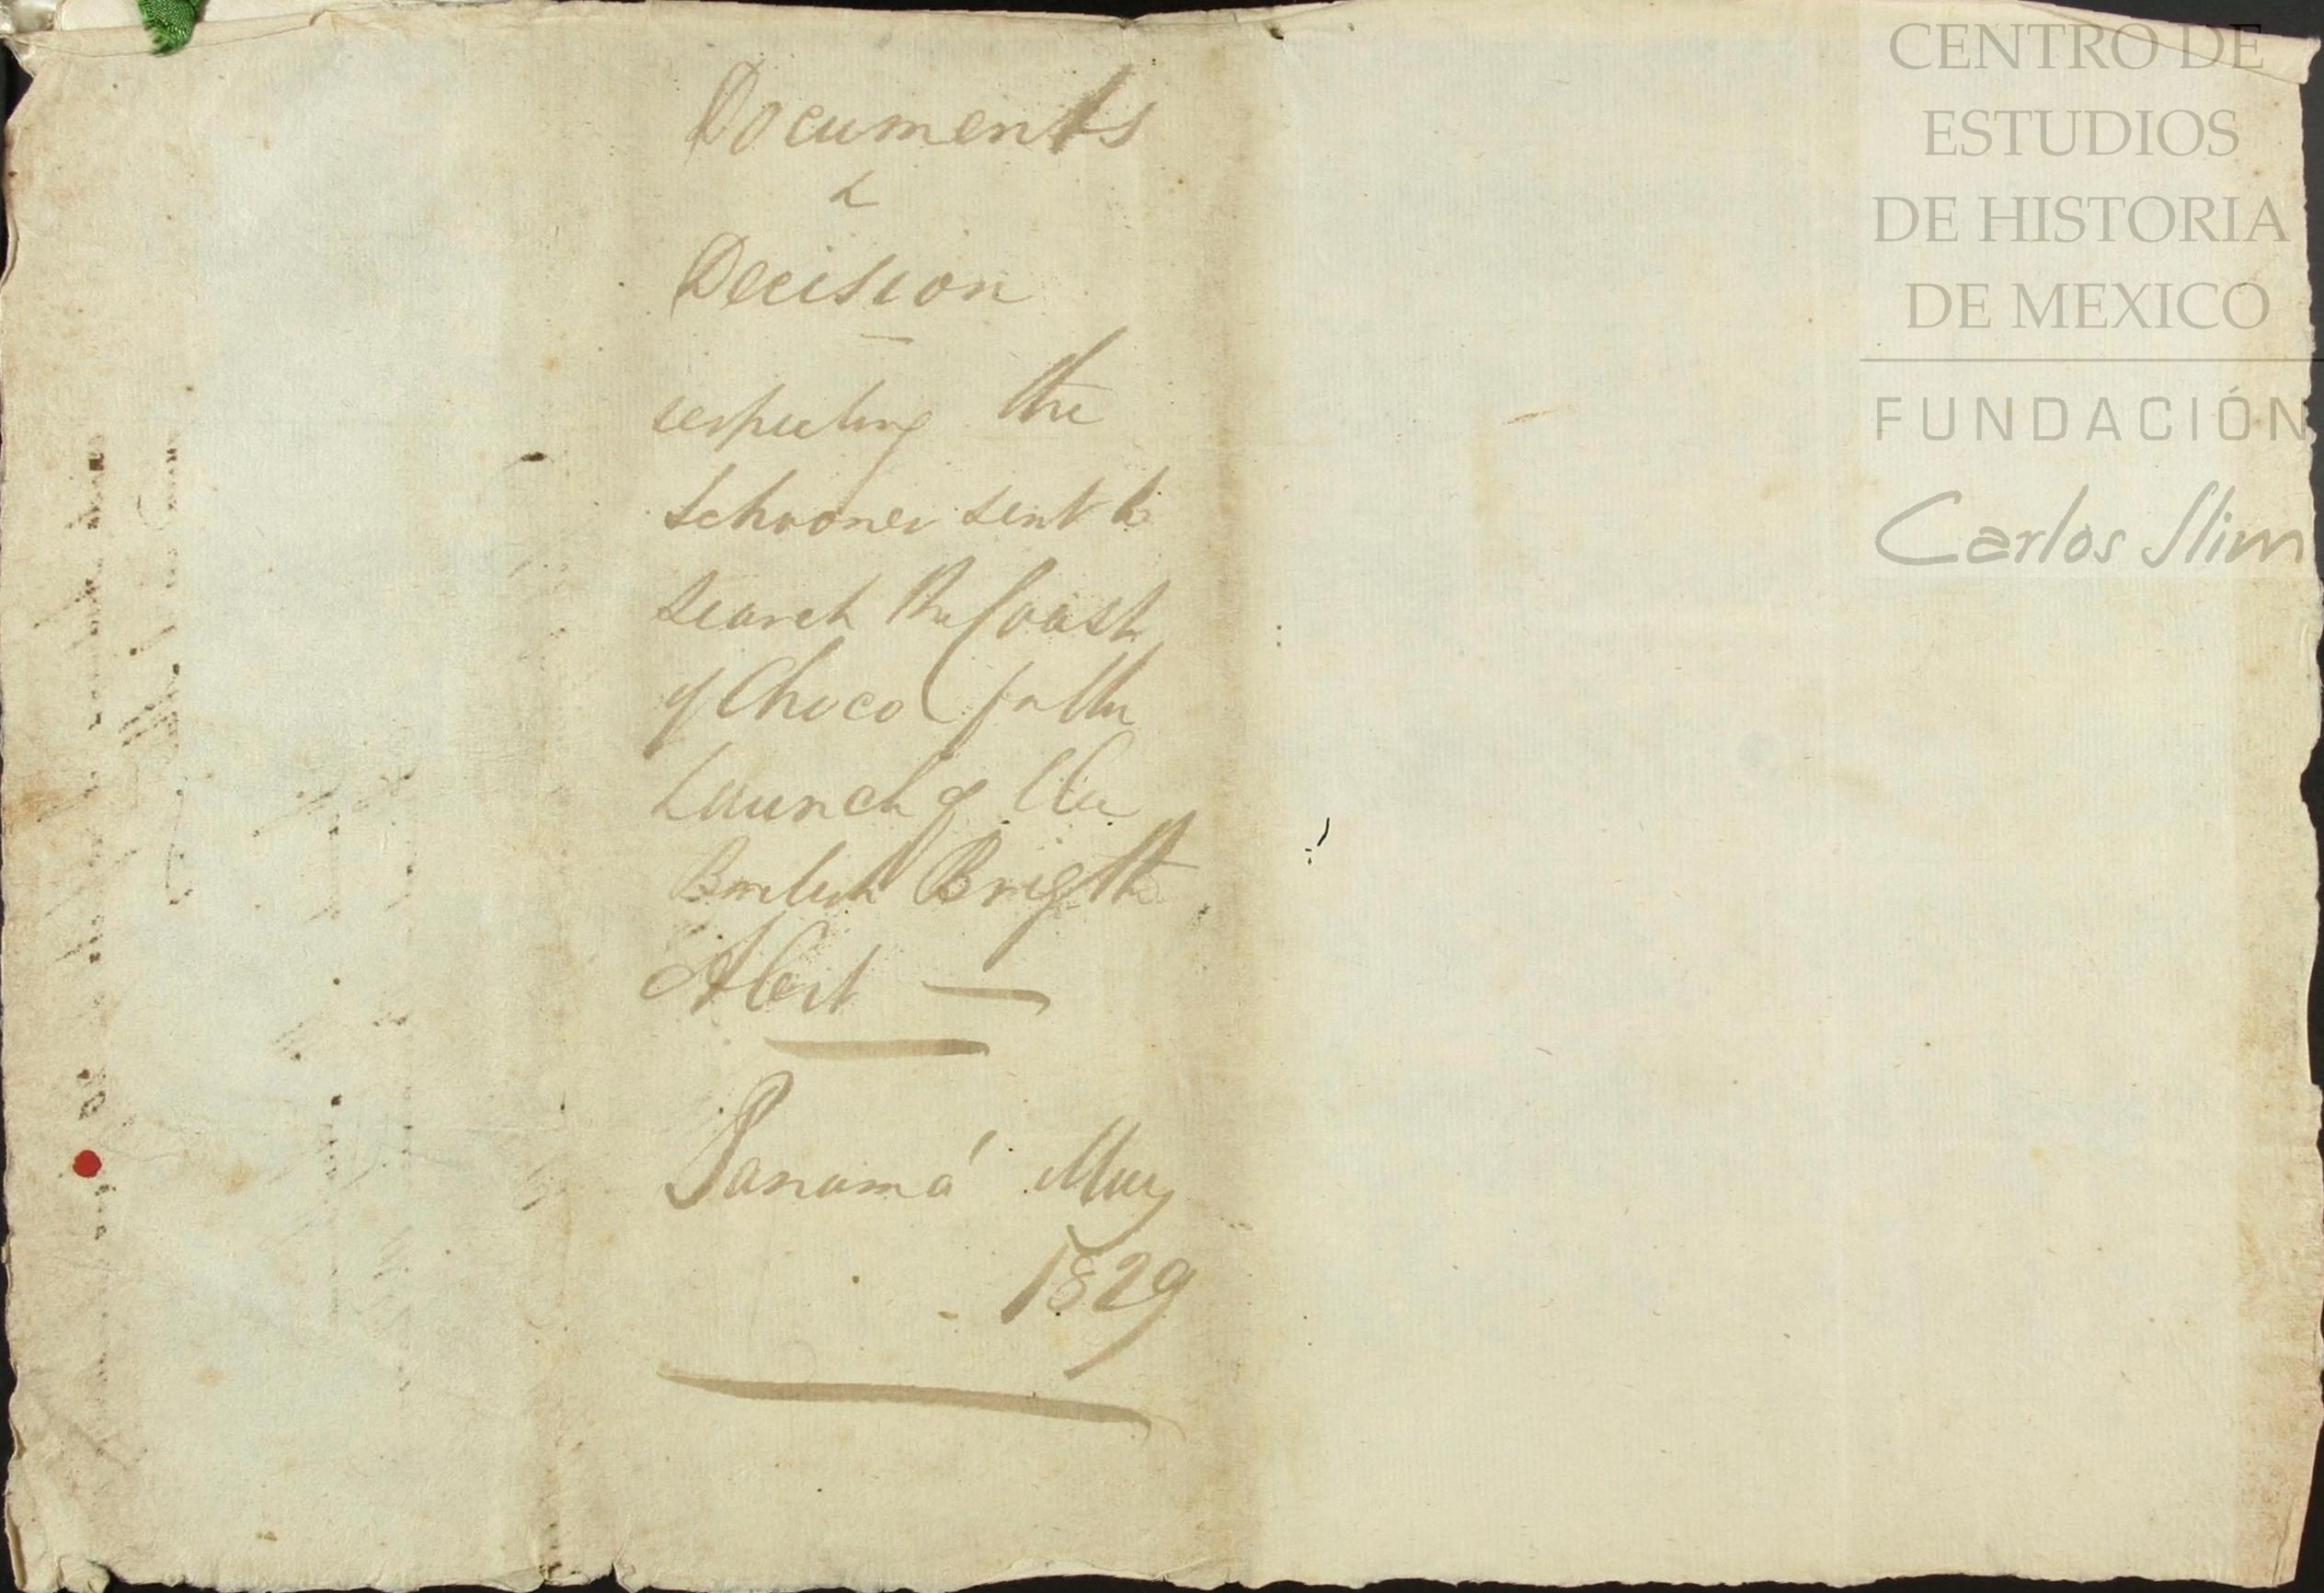 Documents
&
Decision
respecting the
Schooner sent to
search the Coast
of Choco for the
Launch of the
British Brig the
Alert
Panamá May
1829
CENTRO DE
ESTUDIOS
DE HISTORIA
DE MEXICO
FUNDACIÓN
Carlos Slim